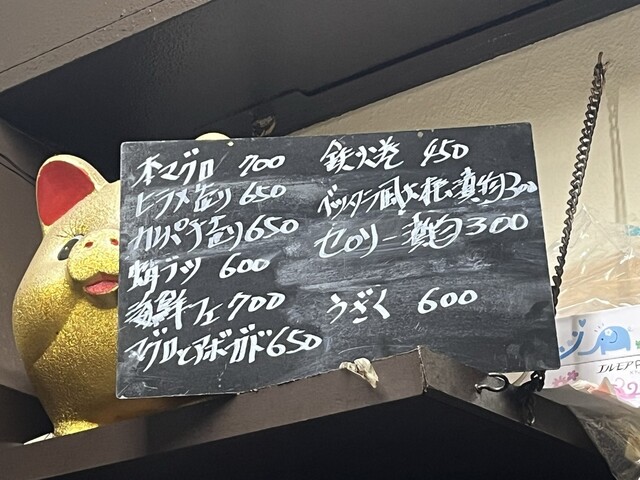 本マグロ 700
ヒラメ造り 650
カンパチ造り 650
蛸ブツ 600
海鮮フェ 700
マグロとアボガド 650
鉄火巻 450
ベッタラ風大根漬物 300
セロリー漬物 300
うざく 600
エルモア